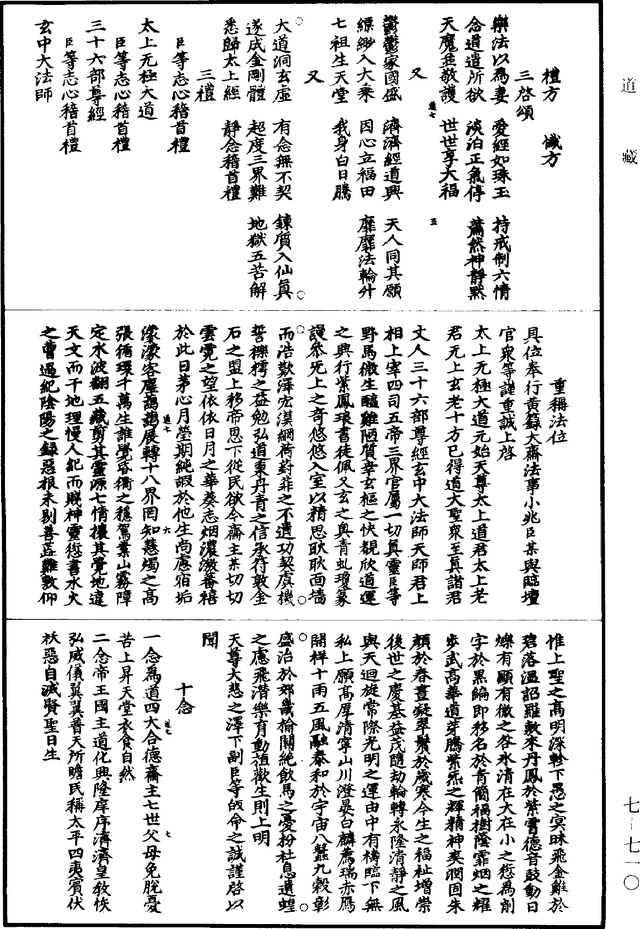 道藏
禮方　懴方
三啓頌
樂法以為妻　愛經如珠玉　持戒制六情
念道遣所欲　淡泊正氣停　蕭然神靜默
天魔並敬護　世世享大福
又
鬱鬱家國盛　濟濟經道興　天人同其願
縹緲入大乘　因心立福田　靡靡法輪升
七祖生天堂　我身白日騰
又
大道洞玄虛　有念無不契　鍊質入仙真
遂成金剛體　超度三界難　地獄五苦解
悉歸太上經　靜念稽首禮
三禮
臣等志心稽首禮
太上无極大道
臣等志心稽首禮
三十六部尊經
臣等志心稽首禮
玄中大法師
重稱法位
具位奉行黃籙大齋法事小兆臣某與臨壇
官衆等謹重誠上啓
太上无極大道元始天尊太上道君太上老
君元上玄老十方已得道大聖衆至真諸君
丈人三十六部尊經玄中大法師天師君上
相上宰四司五帝三界官屬一切真靈臣等
野馬微生醯雞陋質幸玄樞之快覩欣道運
之興行紫鳳琅書徒佩又玄之奧青虬瓊篆
謾叅死上之奇悠悠入室以精思耿耿面墻
而浩歎澤宏漠網荷葑菲之不遺功契虞機
誓櫟樗之益勉弘道東丹青之信承符敦金
石之盟上移帝恩下從民欲今齋主某切切
雲霓之望依依日月之華葵志烟濃激蕃禧
於此日茅心月瑩期純嘏於他生尚慮宿垢
濛濛客塵藹藹展轉十八界罔知慧燭之高
張循環千萬生誰覺昏衢之穩駕業山霧障
定水波翻五藏剪其靈源七情擾其覺地違
天文而干地理慢人紀而賤神靈愆書水火
之曹過紀陰陽之錄惡根未剔善蕋難敷仰
惟上聖之高明深軫下愚之冥昧飛金雞於
碧落溫詔離敷來丹鳳於紫霄德音鼓動日
爍有顯有微之咎氷清在大在小之愆爲削
字於黑編即移名於青簡福樹蔭霏烟之耀
步武高華道芽騰紫炁之輝精神爽潤固朱
顏於春晝凝翠鬢於歲寒今生之福祉增崇
後世之慶基益茂隨劫輪轉永隆清靜之風
與天迴旋常際光明之運由中有禱臨下無
私上願高厚清寧山川澄晏白麟薦瑞赤鴈
開祥十雨五風融泰和於宇宙八蠶九穀彰
盛治於郊畿榆關絶飲馬之憂枌杜息遺蝗
之慮飛潛樂育動植歡生則上明
天尊大悲之澤下副臣等皈命之誠謹啓以
聞
十念
一念爲道四大合德齋主七世父母免脫憂
苦上昇天堂衣食自然
二念帝王國主道化興隆庠序濟濟皇教恢
弘威儀翼翼普天所瞻民稱太平四夷賓伏
袄惡自滅賢聖日生
七－七一〇